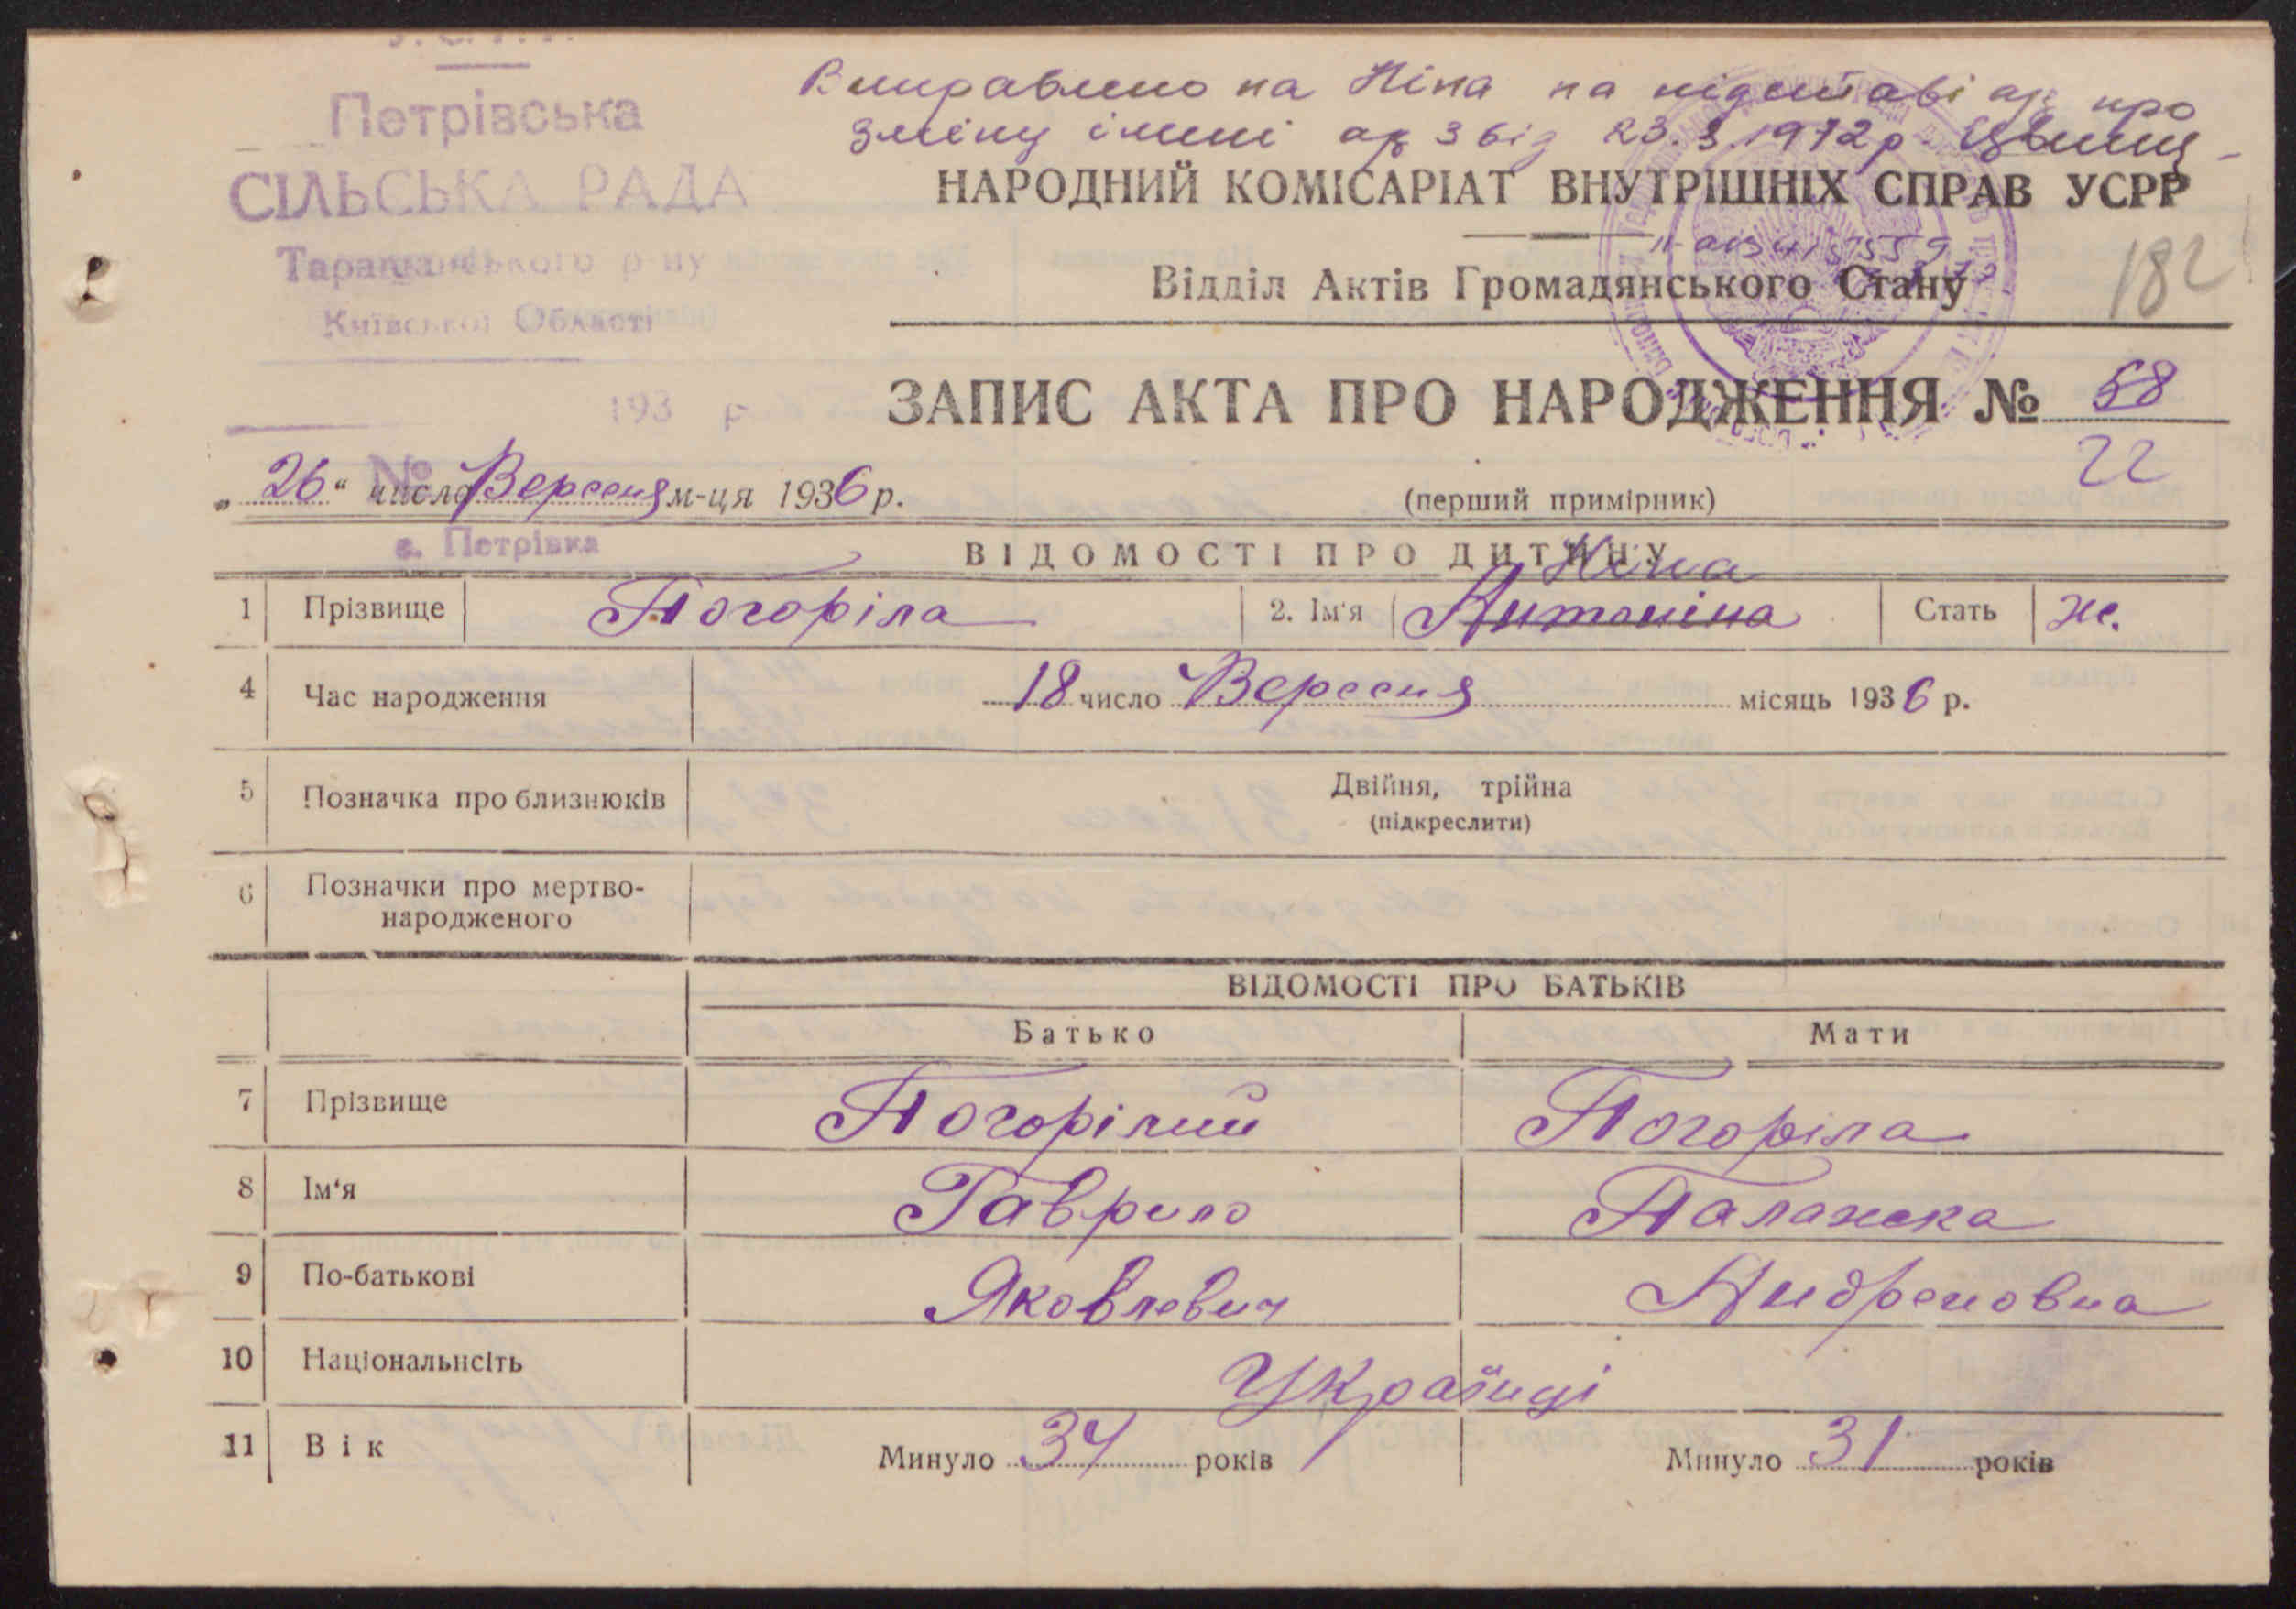 Петрівська
СІЛЬСЬКА РАДА
Таращанського р-ну
Київської Області
193 р.
№
с. Петрівка
Виправлено на Ніна на підставі а/з про
зміну імені а/з 3 від 23.3.1972р.
НАРОДНИЙ КОМІСАРІАТ ВНУТРІШНІХ СПРАВ УСРР
Відділ Актів Громадянського Стану
182
ЗАПИС АКТА ПРО НАРОДЖЕННЯ № 58
22
„ 26 “ число Вересня м-ця 1936 р.
(перший примірник)
ВІДОМОСТІ ПРО ДИТИНУ
Ніна
1 Прізвище Погоріла 2. Ім'я Антоніна Стать ж.
4 Час народження 18 число Вересня місяць 1936 р.
5 Позначка про близнюків Двійня, трійна
(підкреслити)
6 Позначки про мертво-
народженого
ВІДОМОСТІ ПРО БАТЬКІВ
Батько Мати
7 Прізвище Погорілий Погоріла
8 Ім'я Гаврило Палажка
9 По-батькові Яковлевич Андреновна
10 Національність Українці
11 Вік Минуло 34 років Минуло 31 років